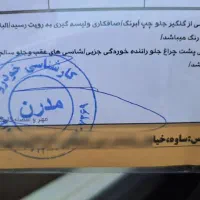 ی از گلگیر جلو چپ ابرنگ/صافکاری ولیسه گیری به رویت رسید/البا
رنگ میباشد/
ی پشت چراغ جلو راننده خوردگی جزیی/شاسی های عقب وجلو سالم
شد/
کارشناسی خودرو
مدرن
مهر و امضاء
س:ساوه،خیا